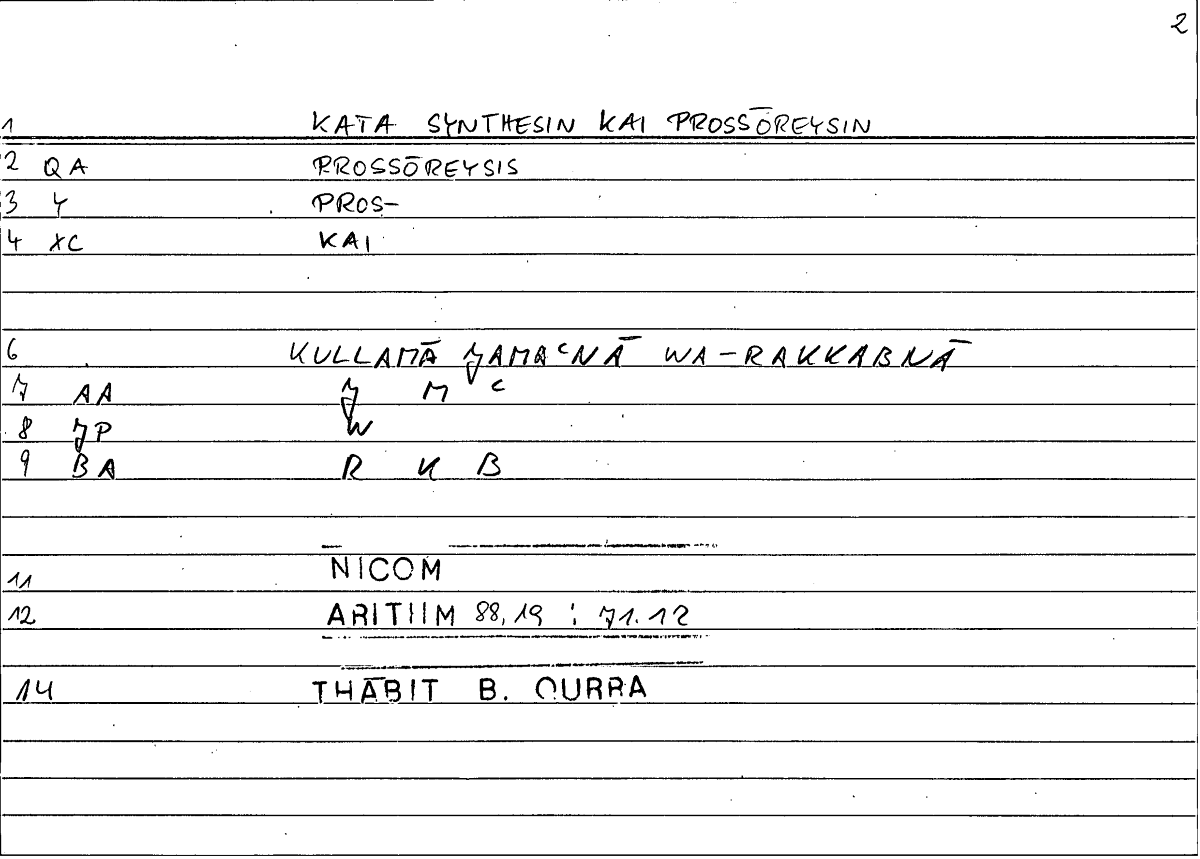 2
1 KATA SYNTHESIN KAI PROSSŌREYSIN
2 QA PROSSŌREYSIS
3 Y PROS-
4 XC KAI
6 KULLAMĀ ǦAMAᶜNĀ WA-RAKKABNĀ
7 AA Ǧ M ᶜ
8 ǦP W
9 BA R K B
11 NICOM
12 ARITHM 88,19 : 71.12
14 THĀBIT B. QURRA